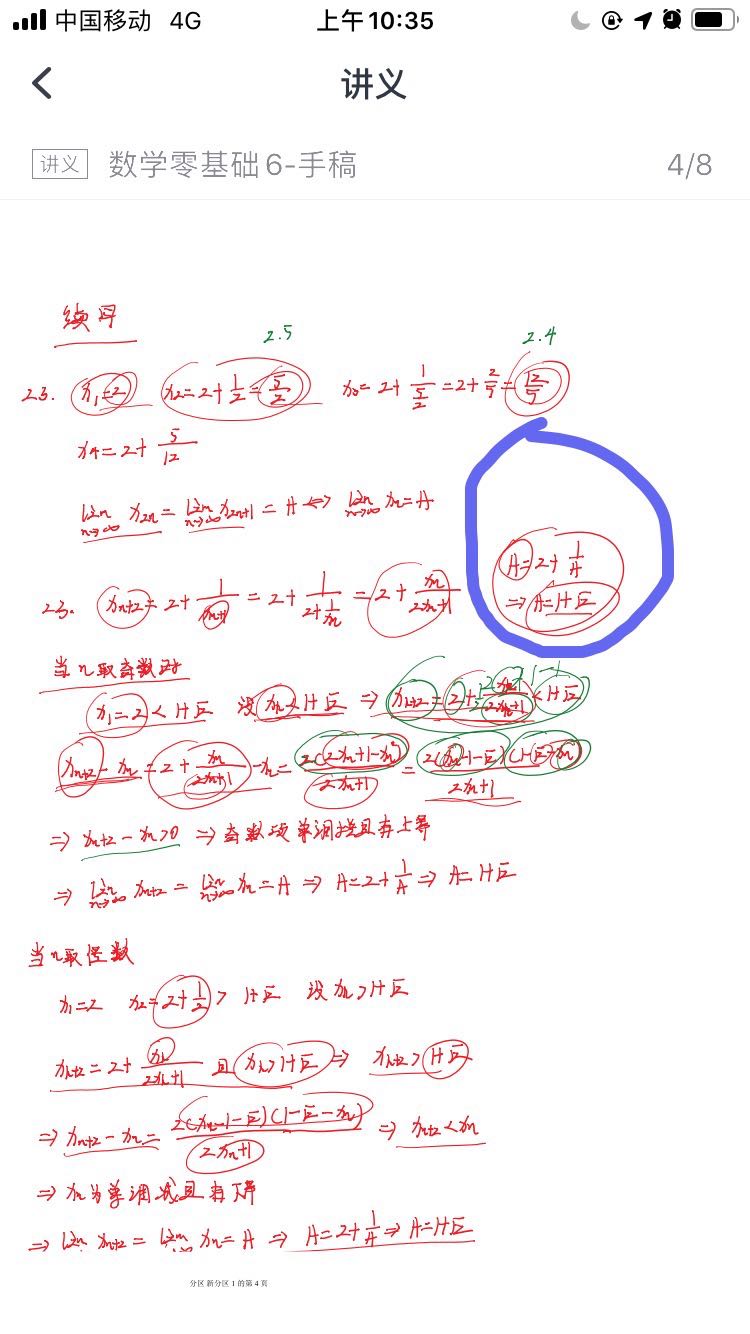 中国移动 4G 上午10:35
讲义
讲义 数学零基础6-手稿 4/8
2.5 2.4
23. x₁=2 x₂=2+1/2=5/2 x₃=2+1/(5/2)=2+2/5=12/5
x₄=2+5/12
lim n→∞ x₂ₙ = lim n→∞ x₂ₙ₊₁ = A ⇔ lim n→∞ xₙ=A
A=2+1/A
⇒ A=1+√2
23. xₙ₊₂=2+1/xₙ₊₁ = 2+1/(2+1/xₙ) = 2+xₙ/(2xₙ+1)
当n取奇数时
x₁=2<1+√2 设xₖ<1+√2 ⇒ xₖ₊₂=2+xₖ/(2xₖ+1)<1+√2
xₙ₊₂-xₙ=2+xₙ/(2xₙ+1)-xₙ=2(2xₙ+1-xₙ²)/(2xₙ+1)=2(xₙ-1-√2)(1-√2-xₙ)/(2xₙ+1)
⇒ xₙ₊₂-xₙ>0 ⇒ 奇数项单调增且有上界
⇒ lim n→∞ xₙ₊₂ = lim n→∞ xₙ=A ⇒ A=2+1/A ⇒ A=1+√2
当n取偶数
x₁=2 x₂=2+1/2>1+√2 设xₖ>1+√2
xₖ₊₂=2+xₖ/(2xₖ+1) 且xₖ>1+√2 ⇒ xₖ₊₂>1+√2
⇒ xₙ₊₂-xₙ=2(xₙ-1-√2)(1-√2-xₙ)/(2xₙ+1) ⇒ xₙ₊₂<xₙ
⇒ xₙ为单调减且有下界
⇒ lim xₙ₊₂ = lim xₙ=A ⇒ A=2+1/A ⇒ A=1+√2
分区 新分区 1 的第 4 页